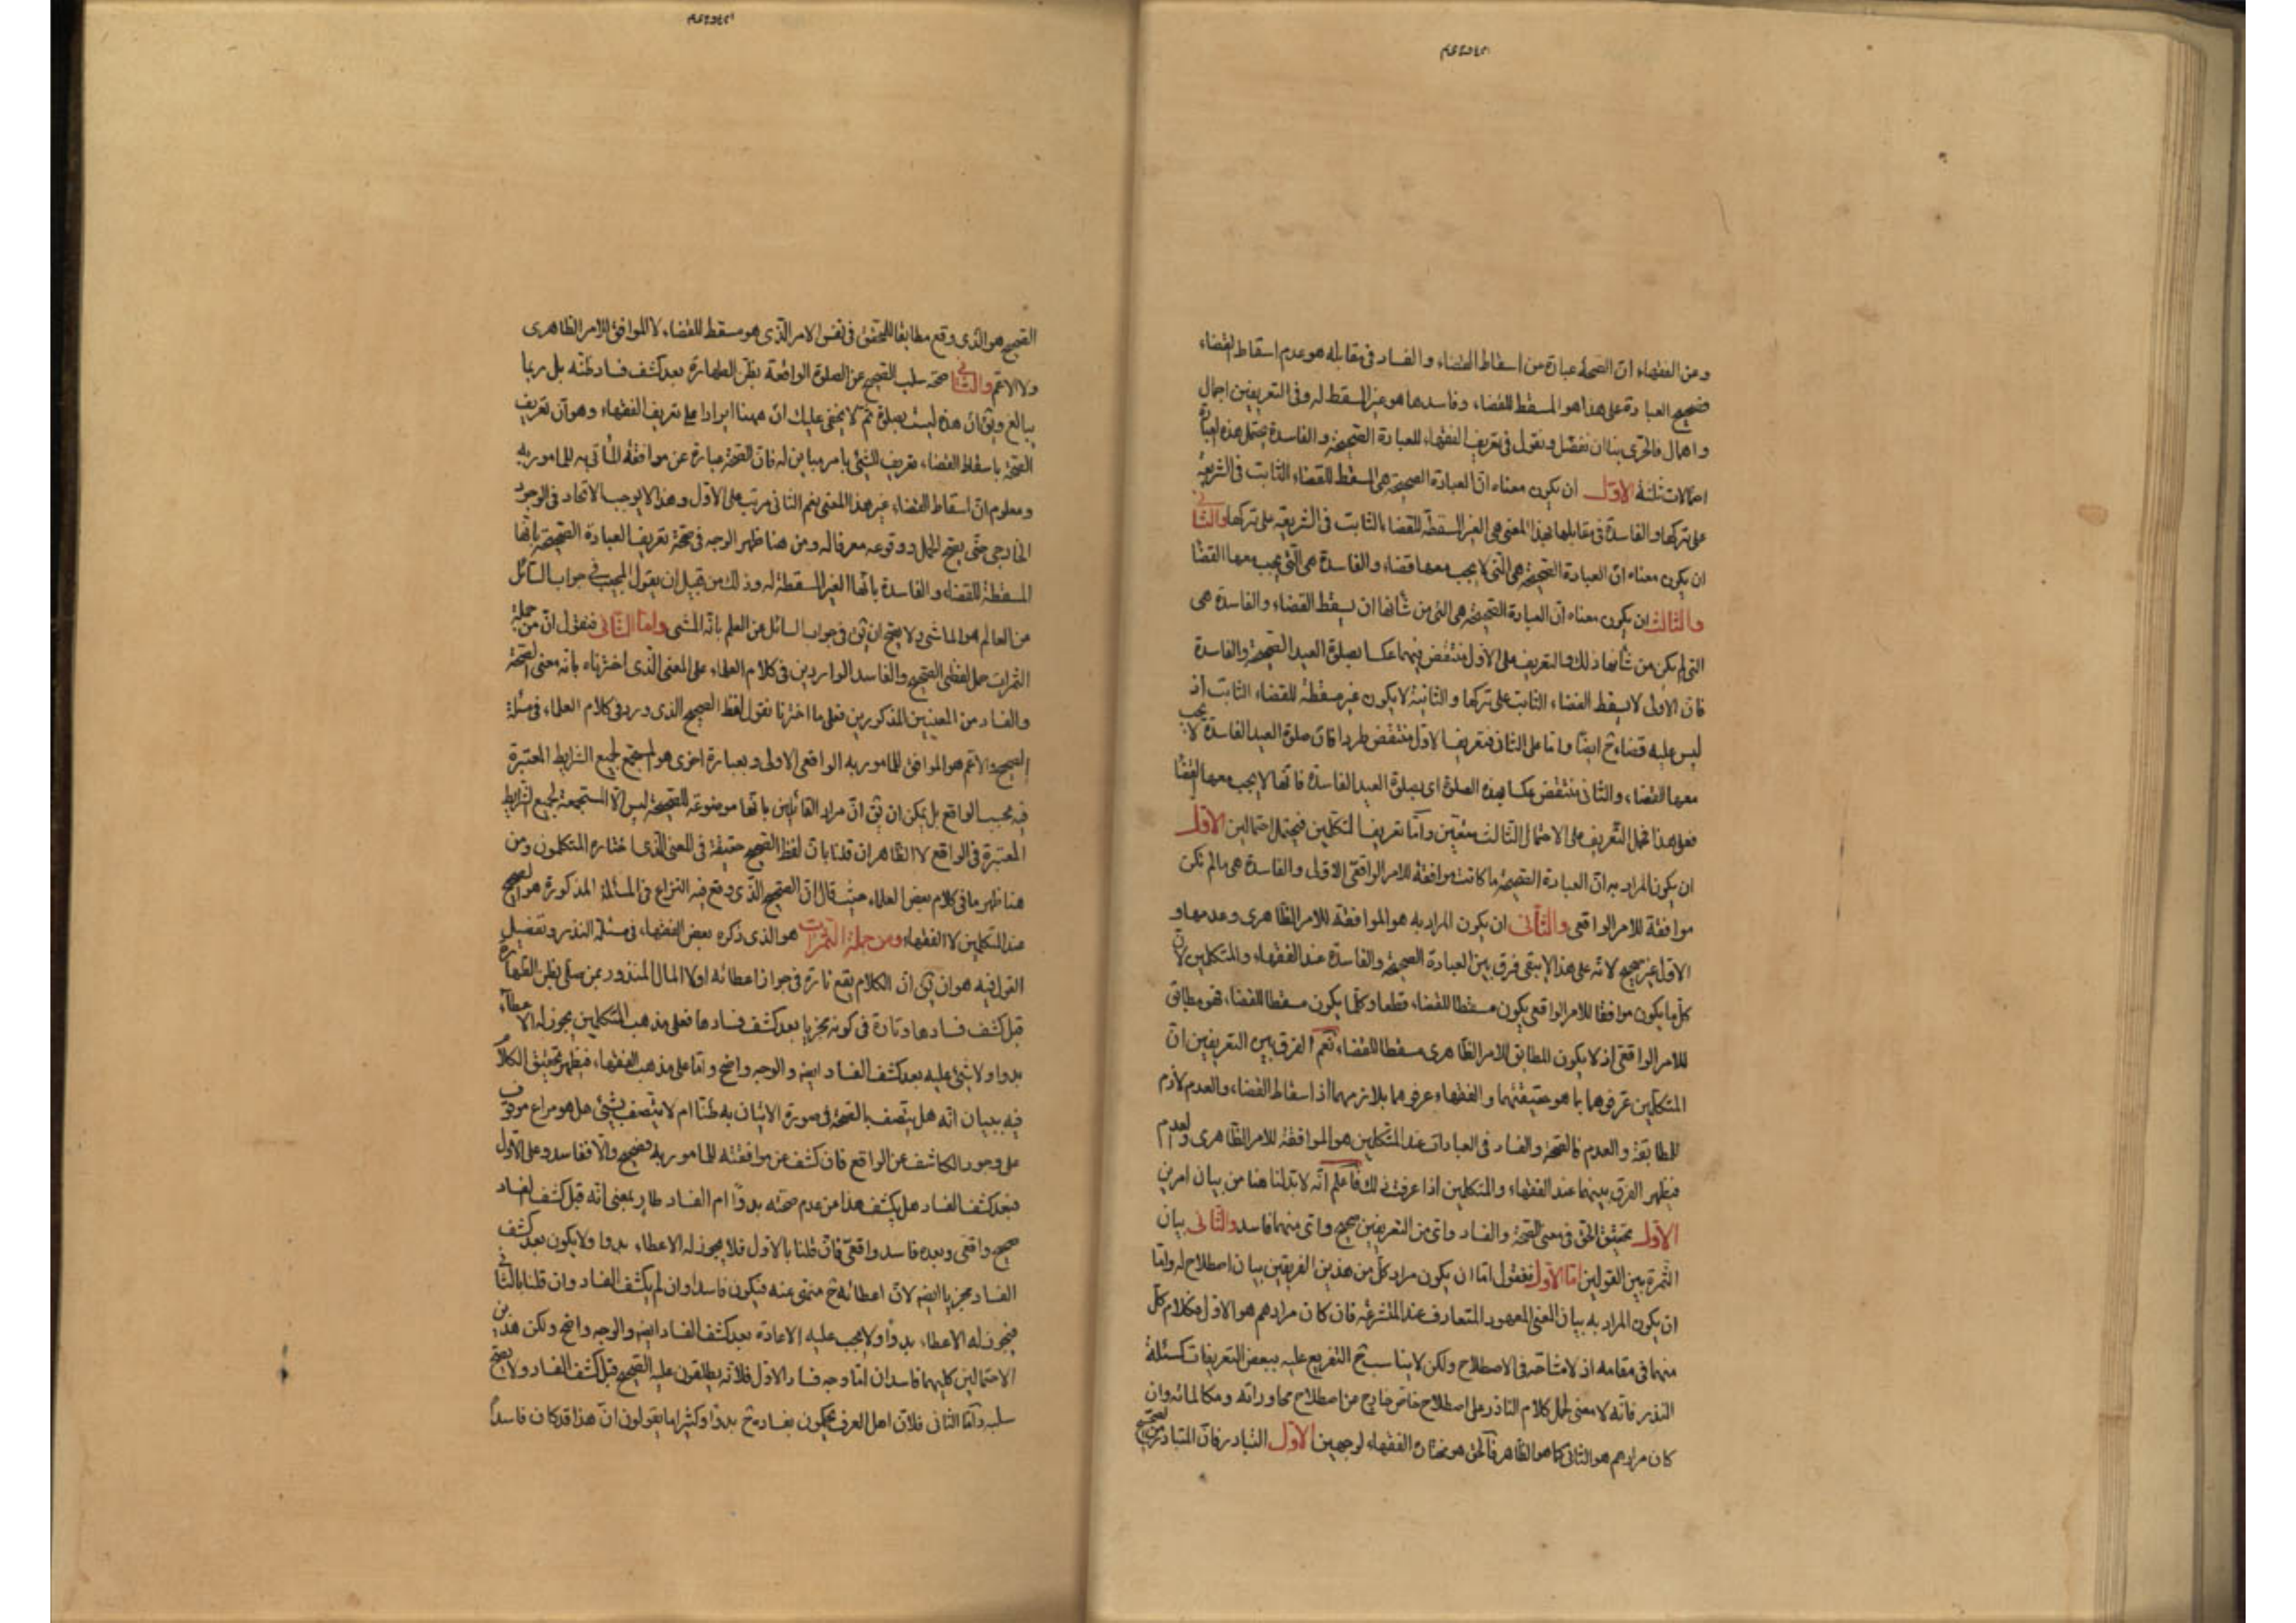 وعن الفقهاء ان الصحة عبارة من اسقاط القضاء والفساد فى مقابله هو عدم اسقاط القضاء
فصحيح العبادة على هذا هو المسقط للقضاء وفاسدها هو غير المسقط له وفى التعريفين اجمال
واهمال فالحرى بنا ان نفصل ونقول فى تعريف الفقهاء للعبادة الصحيحة والفاسدة يحتمل هذه العبارة
احتمالات ثلثة الاول ان يكون معناه ان العبادة الصحيحة هى المسقط للقضاء الثابت فى الشريعة
على تركها والفاسدة فى مقابلها بهذا المعنى هى الغير المسقطة للقضاء الثابت فى الشريعة على تركها والثانى
ان يكون معناه ان العبادة الصحيحة هى التى لا يجب معها قضاء والفاسدة هى التى يجب معها القضا
والثالث ان يكون معناه ان العبادة الصحيحة هى التى من شانها ان يسقط القضاء والفاسدة هى
التى لم يكن من شانها ذلك والتعريف على الاول منتقض منهما عكسا بصلوة العيد الصحيحة والفاسدة
فان الاولى لا يسقط القضاء الثابت على تركها والثانية لا يكون غير مسقطة للقضاء الثابت اذ
ليس عليه قضاء ح ايضا واما على الثانى فتعريف الاول منتقض طردا فان صلوة العيد الفاسدة لا يجب
معها القضاء والثانى منتقض عكسا بهذه الصلوة اى بصلوة العيد الفاسدة فانها لا يجب معها القضا
فعلى هذا حمل التعريف على الاحتمال الثالث متعين واما تعريف المتكلمين فيحتمل احتمالين الاول
ان يكون المراد به ان العبادة الصحيحة ما كانت موافقة للامر الواقعى الاولى والفاسدة هى ما لم تكن
موافقة للامر الواقعى والثانى ان يكون المراد به هو الموافقة للامر الظاهرى وعدمها و
الاول غير صحيح لانه على هذا لا يبقى فرق بين العبادة الصحيحة والفاسدة عند الفقهاء والمتكلمين لان
كل ما يكون موافقا للامر الواقعى يكون مسقطا للقضاء قطعا وكلما يكون مسقطا للقضاء فهو مطابق
للامر الواقعى اذ لا يكون المطابق للامر الظاهرى مسقطا للقضاء نعم الفرق بين التعريفين ان
المتكلمين عرفوهما بما هو حقيقتهما والفقهاء عرفوهما بلازمهما اذ اسقاط القضاء والعدم لازم
للمطابقة والعدم فالصحة والفساد فى العبادات عند المتكلمين هو الموافقة للامر الظاهرى والعدم
فيظهر الفرق بينهما عند الفقهاء والمتكلمين اذا عرفت ذلك فاعلم انه لا بد لنا هنا من بيان امرين
الاول تحقيق الحق فى معنى الصحة والفساد واى من التعريفين صحيح واى منهما فاسد والثانى بيان
الثمرة بين القولين اما الاول فنقول اما ان يكون مراد كل من هذين الفريقين بيان اصطلاح له واما
ان يكون المراد به بيان المعنى المعهود المتعارف عند المتشرعة فان كان مرادهم هو الاول فكلام كل
منهما فى مقامه اذ لا مشاحة فى الاصطلاح ولكن لا يناسب ح التفريع عليه ببعض التفريعات كمسئلة
النذر فانه لا معنى لحمل كلام الناذر على اصطلاح خاص خارج من اصطلاح محاوراته ومكالماته وان
كان مرادهم هو الثانى كما هو الظاهر فالحق هو مختار الفقهاء لوجهين الاول التبادر فان المتبادر من الصحيح
الصحيح هو الذى وقع مطابقا للمحقق فى نفس الامر الذى هو مسقط للقضاء لا للموافق للامر الظاهرى
ولا الاعم والثانى صحة سلب الصحيح عن الصلوة الواقعة بظن الطهارة بعد كشف فساد ظنه بل ربما
يبالغ ويق ان هذه ليست بصلوة ثم لا يخفى عليك ان ههنا ايرادا على تعريف الفقهاء وهو ان تعريف
الصحة باسقاط القضاء تعريف للشئ بامر مباين له فان الصحة عبارة عن موافقة المأتى به للمامور به
ومعلوم ان اسقاط القضاء غير هذا المعنى نعم الثانى مرتب على الاول وهذا لا يوجب الاتحاد فى الوجود
الخارجى حتى يصح الحمل ووقوعه معرفا له ومن هنا ظهر الوجه فى صحة تعريف العبادة الصحيحة بانها
المسقطة للقضاء والفاسدة بانها الغير المسقطة له وذلك من قبيل ان يقول المجيب فى جواب السائل
من العالم هو الماشى ولا يصح ان يق فى جواب السائل عن العلم بانه المشى واما الثانى فنقول ان من جملة
الثمرات حمل لفظى الصحيح والفاسد الواردين فى كلام العلماء على المعنى الذى اخترناه بانه معنى الصحة
والفساد من المعنيين المذكورين فعلى ما اخترنا نقول لفظ الصحيح الذى ورد فى كلام العلماء فى مسئلة
الصحيح والاعم هو الموافق للمامور به الواقعى الاولى وبعبارة اخرى هو المستجمع لجميع الشرايط المعتبرة
فيه بحسب الواقع بل يمكن ان يق ان مراد القائلين بانها موضوعة للصحيحة ليس الا المستجمعة لجميع الشرايط
المعتبرة فى الواقع لا الظاهر ان قلنا بان لفظ الصحيح حقيقة فى المعنى الذى اختاره المتكلمون ومن
هنا ظهر ما فى كلام بعض العلماء حيث قال ان الصحيح الذى وقع فيه النزاع فى المسئلة المذكورة هو الصحيح
عند المتكلمين لا الفقهاء ومن جملة الثمرات هو الذى ذكره بعض الفقهاء فى مسئلة النذر وتفصيل
القول فيه هو ان يق ان الكلام يقع تارة فى جواز اعطائه اولا المال المنذور بمن صلى بظن الطهارة
قبل كشف فسادها وتارة فى كونه مجزيا بعد كشف فسادها فعلى مذهب المتكلمين يجوز له الاعطاء
بدوا ولا شئ عليه بعد كشف الفساد ايضا والوجه واضح واما على مذهب الفقهاء فيظهر تحقيق الكلام
فيه ببيان انه هل يتصف بالصحة فى صورة الاتيان به ظنا ام لا يتصف بشئ بل هو مراع موقوف
على وجود الكاشف عن الواقع فان كشف عن موافقته للمامور به فصحيح والا ففاسد وعلى الاول
فبعد كشف الفساد هل يكشف هذا من عدم صحته بدوا ام الفساد طار بمعنى انه قبل كشف الفساد
صحيح واقعى وبعده فاسد واقعى فان قلنا بالاول فلا يجوز له الاعطاء بدوا ولا يكون بعد كشف
الفساد مجزيا ايضا لان اعطائه ح منهى عنه فيكون فاسدا وان لم يكشف الفساد وان قلنا بالثانى
فيجوز له الاعطاء بدوا ولا يجب عليه الاعادة بعد كشف الفساد ايضا والوجه واضح ولكن هذين
الاحتمالين كليهما فاسدان اما وجه فساد الاول فلانه يطلقون عليه الصحيح قبل كشف الفساد ولا يصح
سلبه واما الثانى فلان اهل العرف يحكمون بفساده ح بدوا وكثيرا ما يقولون ان هذا قد كان فاسدا